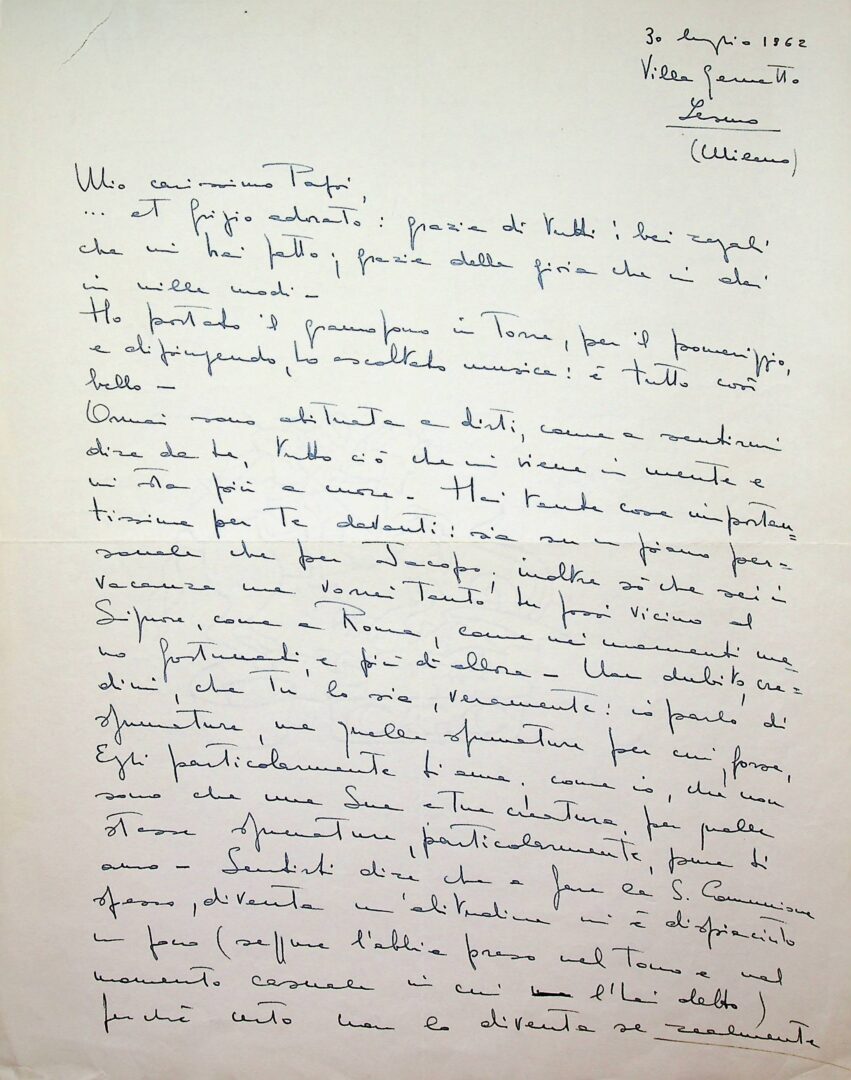 30 luglio 1962
Villa Gernetto
Lesmo
(Milano)
Mio carissimo Papi,
... et grigio adorato: grazie di tutti i bei regali
che mi hai fatto; grazie della gioia che mi dai
in mille modi –
Ho portato il grammofono in Torre, per il pomeriggio,
e dipingendo, ho ascoltato musica: è tutto così
bello –
Ormai sono abituata a dirti, come a sentirmi
dire da te, tutto ciò che mi viene in mente e
mi sta più a cuore – Hai tante cose importan=
tissime per Te davanti: sia su un piano per=
sonale che per Jacopo; inoltre sò che sei in
vacanza ma vorrei tanto tu fossi vicino al
Signore, come a Roma, come nei momenti me=
no fortunati, e più di allora – Non dubito, cre=
dimi, che Tu lo sia, veramente: io parlo di
sfumature, ma quelle sfumature per cui, forse,
Egli particolarmente ti ama. come io, che non
sono che una Sua e tua creatura, per quelle
stesse sfumature, particolarmente, pure ti
amo – Sentirti dire che a fare la S. Comunione
spesso, diventa un'abitudine mi è dispiaciuto
un poco (seppure l'abbia preso nel tono e nel
momento casuale in cui l'hai detto)
perchè certo non lo diventa se realmente